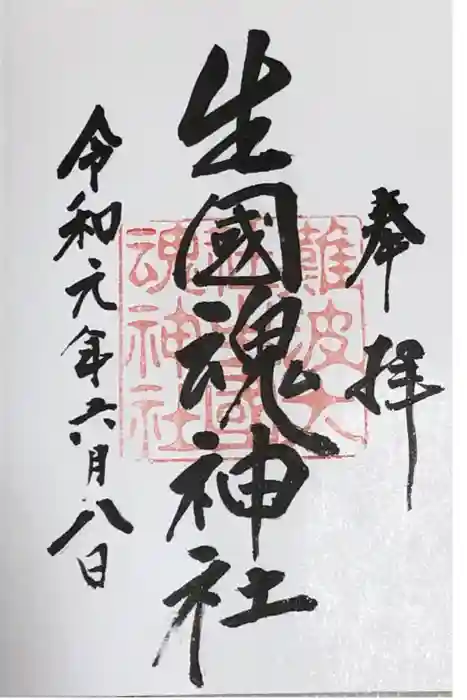 奉拝
生國魂神社
難波大社生國魂神社
令和元年六月八日